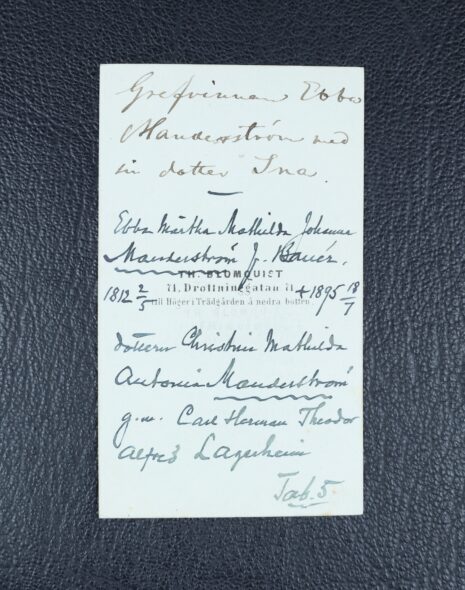 Grefvinnan Ebba
Manderström med
sin dotter Ina.
Ebba Märtha Mathilda Johanna
Manderström f. Banér.
TH. BLOMQUIST
71. Drottninggatan 71
1812 2/5 † 1895 18/7
till Höger i Trädgården å nedra botten.
dottern Christina Mathilda
Antonia Manderström
g.m. Carl Herman Theodor
Alfred Lagerheim
Tab. 5.